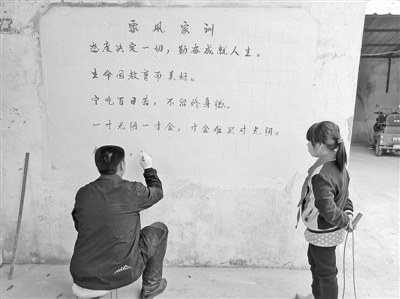 家风家训
态度决定一切，勤奋成就人生。
生命因教育而美好。
宁吃百日苦，不留终身憾。
一寸光阴一寸金，寸金难买寸光阴。